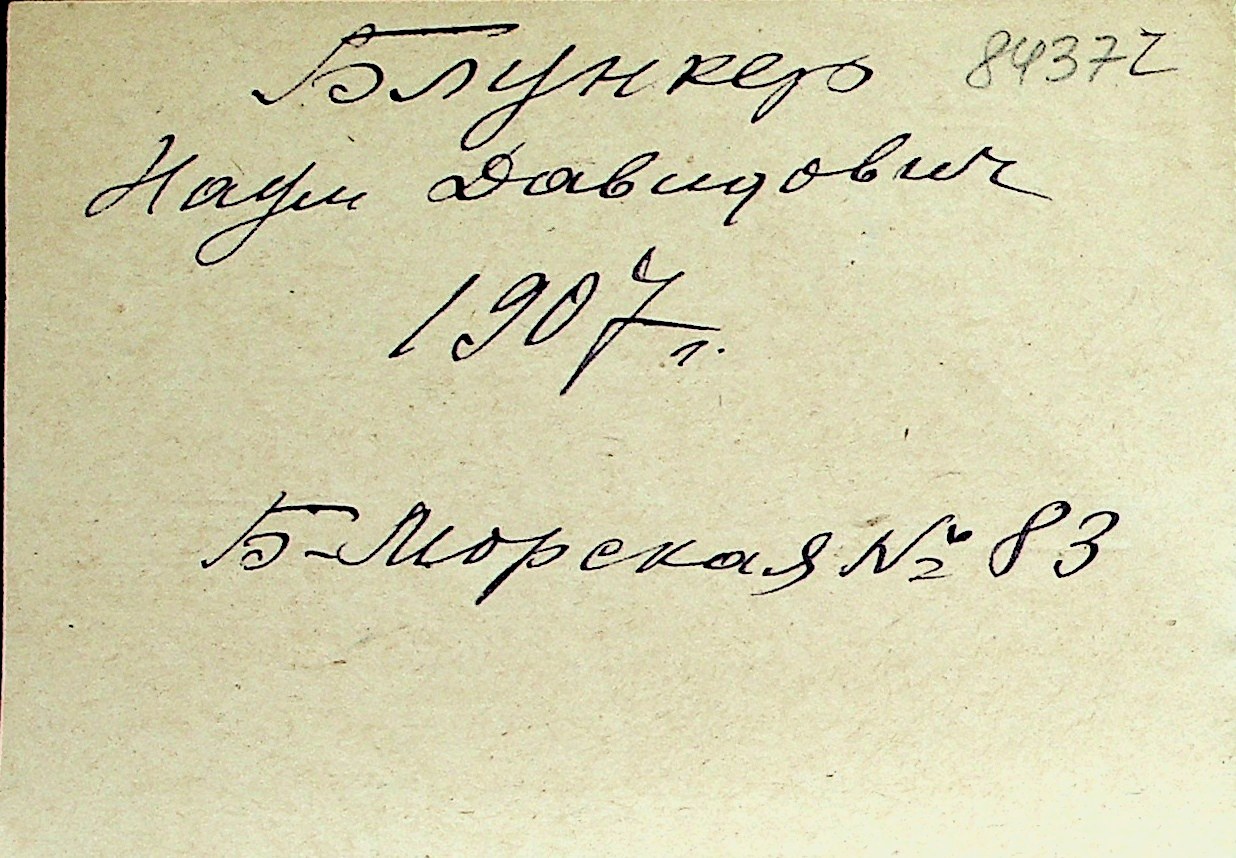 Блункер 84372
Наум Давидович
1907 г.
Б-Морская № 83